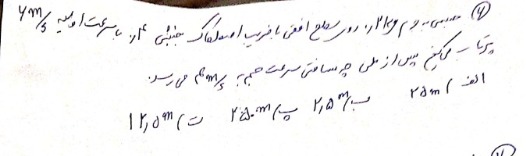 ۴) جسمی به جرم ۲kg را روی سطح افقی با ضریب اصطکاک جنبشی ۰٫۴ با سرعت اولیه ۶m/s
پرتاب می‌کنیم پس از طی چه مسافتی سرعت جسم به ۴m/s می‌رسد.
الف) ۲۵m ب) ۲٫۵m پ) ۲۵۰m ت) ۱۲٫۵m